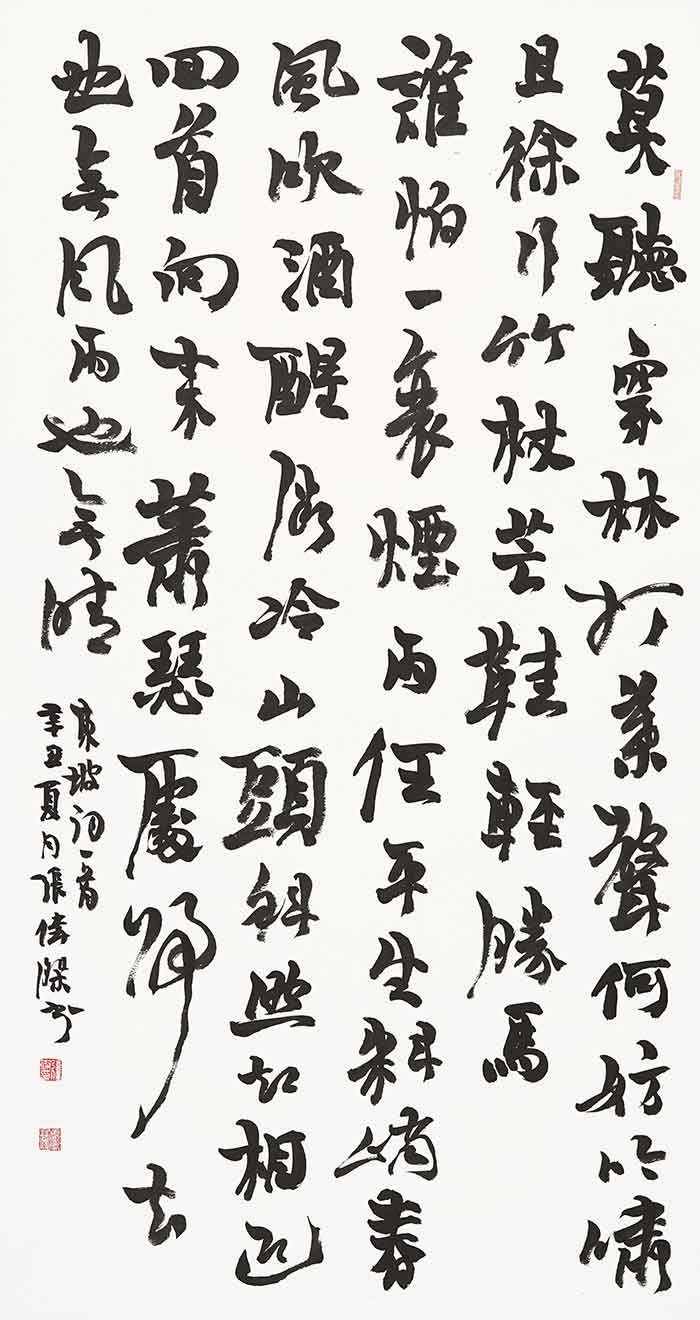 莫聽穿林打葉聲何妨吟嘯
且徐行竹杖芒鞋輕勝馬
誰怕一蓑煙雨任平生料峭春
風吹酒醒微冷山頭斜照却相迎
回首向來蕭瑟處歸去
也無風雨也無晴
東坡詞一首
辛丑夏月張偉書